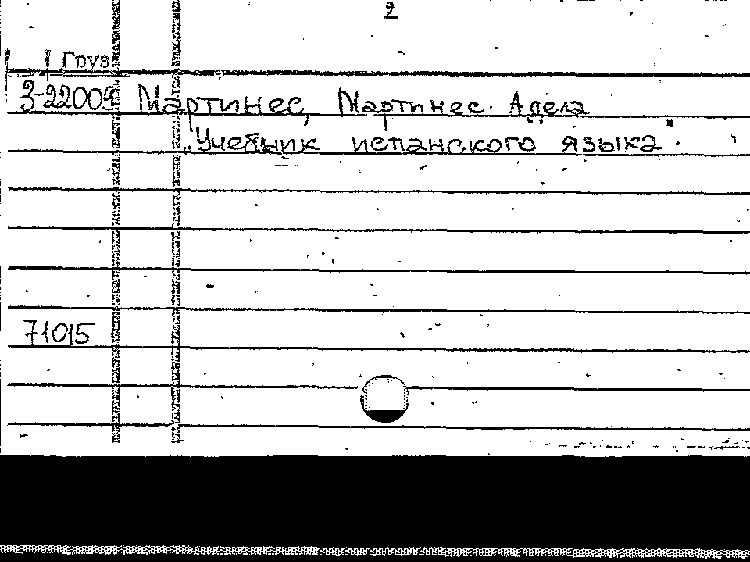 2
Груз
3-22009 Мартинес, Мартинес. Адела
„Учебник испанского языка.
71015